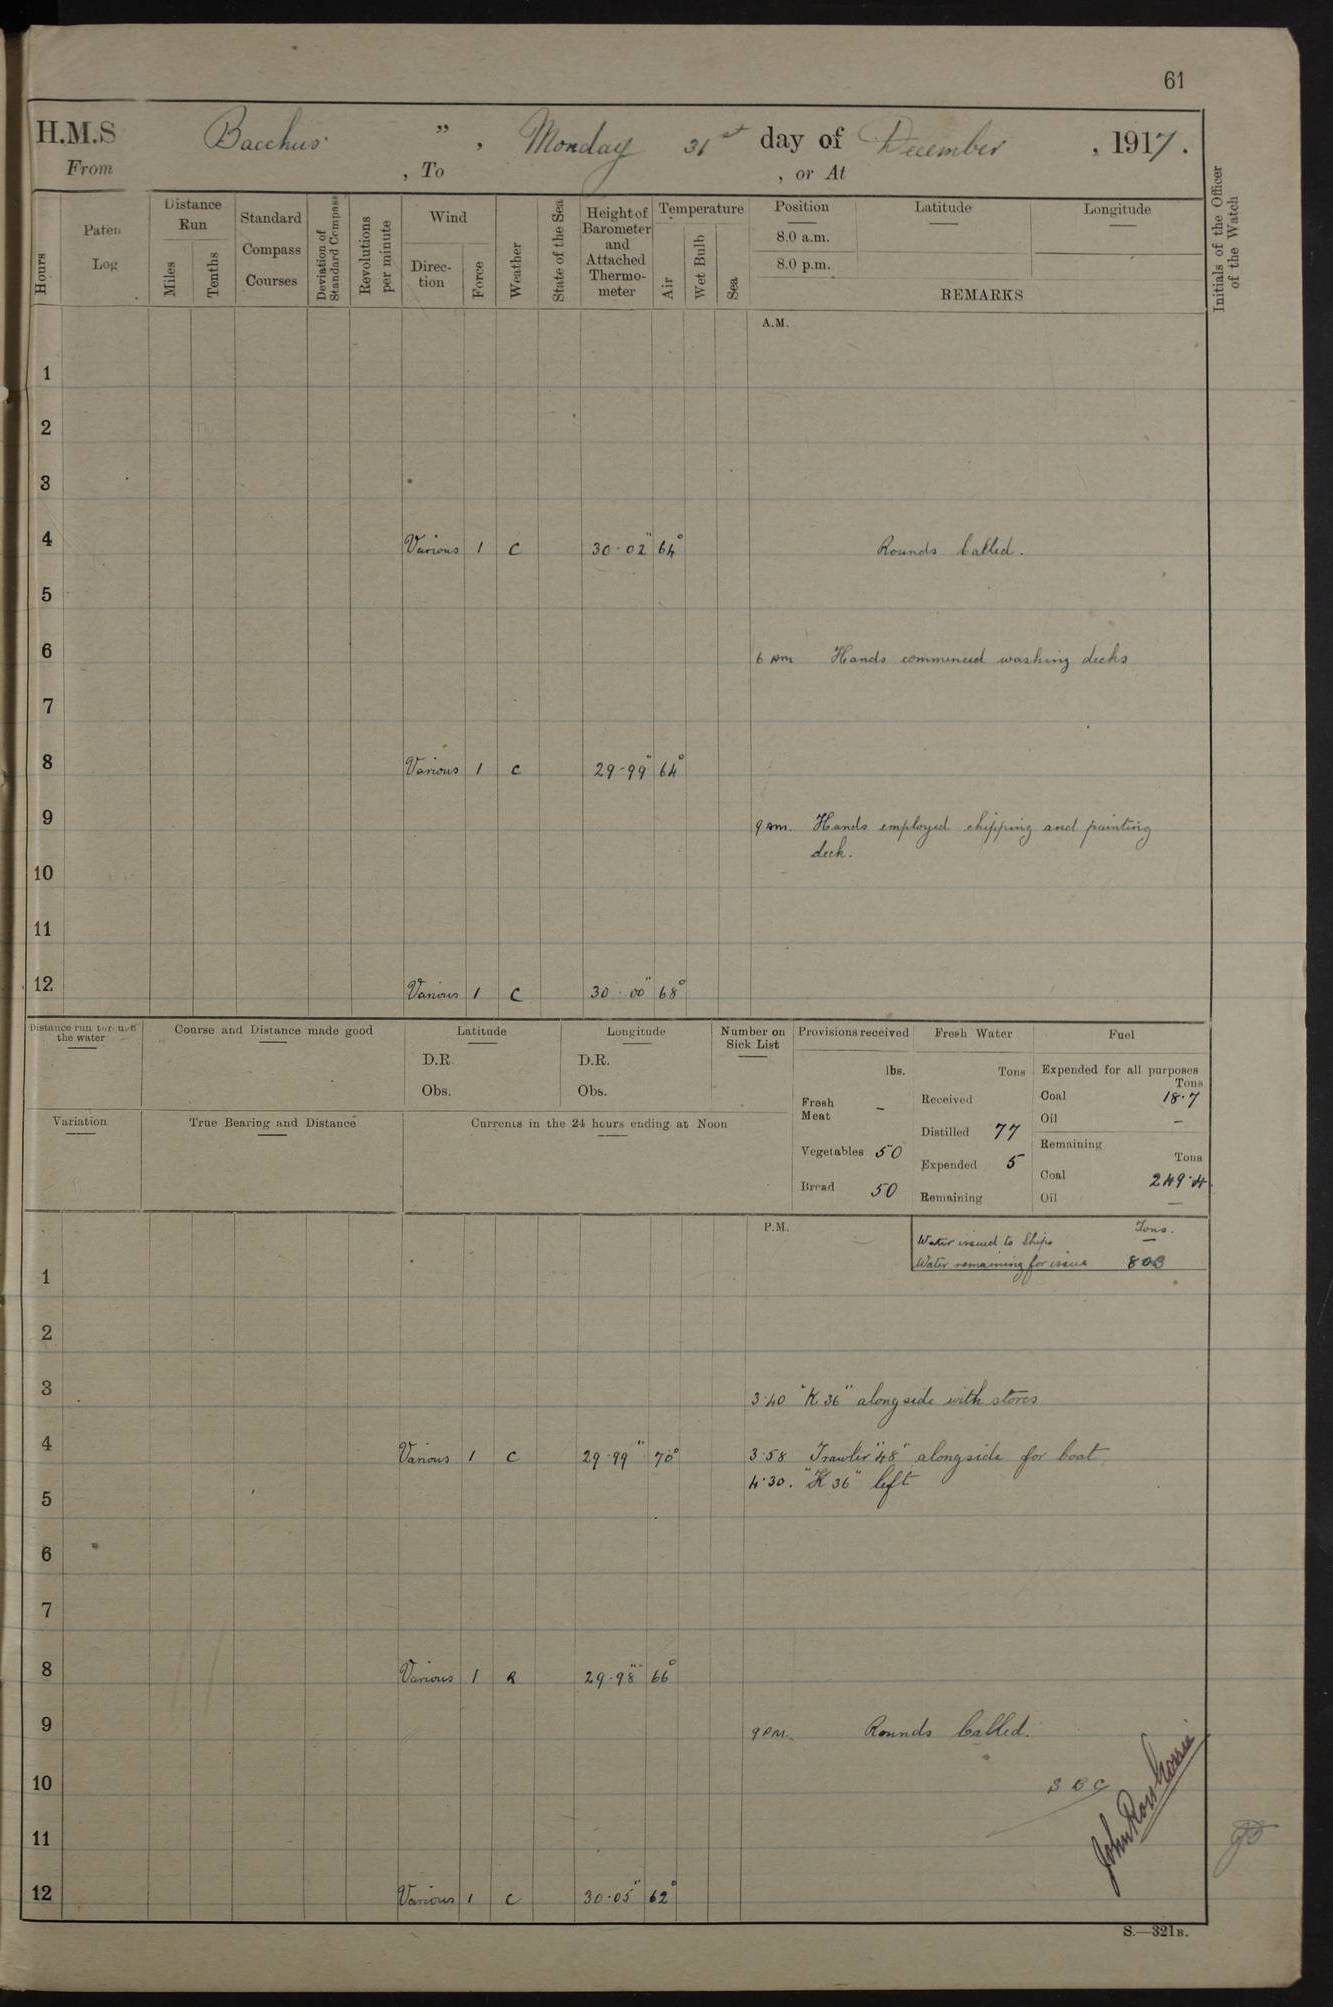 61
H.M.S Bacchus ” , Monday 31st day of December , 1917.
From , To , or At
Hours
Paten Log
Distance Run
Miles
Tenths
Standard Compass Courses
Deviation of Standard Compass
Revolutions per minute
Wind
Direc-tion
Force
Weather
State of the Sea
Height of Barometer and Attached Thermo-meter
Temperature
Air
Wet Bulb
Sea
Position
8.0 a.m.
8.0 p.m.
Latitude
Longitude
REMARKS
Initials of the Officer of the Watch
A.M.
1
2
3
4 Various 1 C 30·02" 64° Rounds Called.
5
6 6 AM Hands commenced washing decks
7
8 Various 1 C 29·99" 64°
9 9 AM. Hands employed chipping and painting
deck.
10
11
12 Various 1 C 30·00" 68°
Distance run through the water
Course and Distance made good
Latitude
D.R.
Obs.
Longitude
D.R.
Obs.
Number on Sick List
Provisions received
lbs.
Fresh Meat –
Vegetables 50
Bread 50
Fresh Water
Tons
Received
Distilled 77
Expended 5
Remaining
Fuel
Expended for all purposes
Tons
Coal 18·7
Oil –
Remaining
Tons
Coal 249·4
Oil —
Variation
True Bearing and Distance
Currents in the 24 hours ending at Noon
P.M.
Tons.
Water issued to Ships —
Water remaining for issue 803
1
2
3 3·40 "K 36" alongside with stores
4 Various 1 C 29·99" 70° 3·58 Trawler "48" alongside for boat
4·30. "K 36" left
5
6
7
8 Various 1 R 29·98" 66°
9 9 PM. Rounds Called.
10
11 John Ross
12 Various 1 C 30·05" 62°
S.—321B.